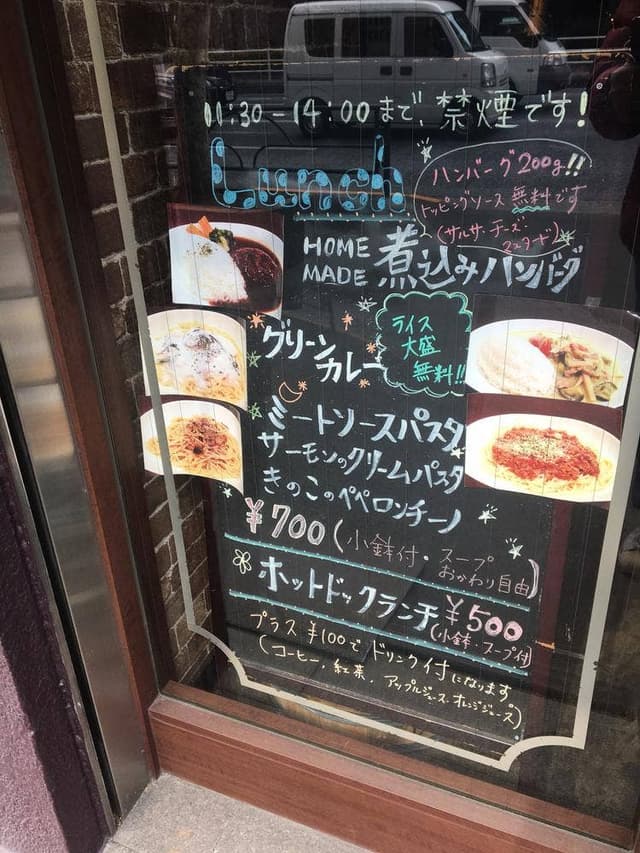 11:30-14:00まで、禁煙です!
Lunch
ハンバーグ200g!!
トッピングソース無料です
(サルサ・チーズ・
マスタード)
HOME
MADE
煮込みハンバーグ
グリーン
カレー
ライス
大盛
無料!!
ミートソースパスタ
サーモンのクリームパスタ
きのこのペペロンチーノ
¥700(小鉢付・スープ
おかわり自由)
ホットドックランチ¥500
(小鉢・スープ付)
プラス¥100でドリンク付になります
(コーヒー、紅茶、アップルジュース、オレンジジュース)